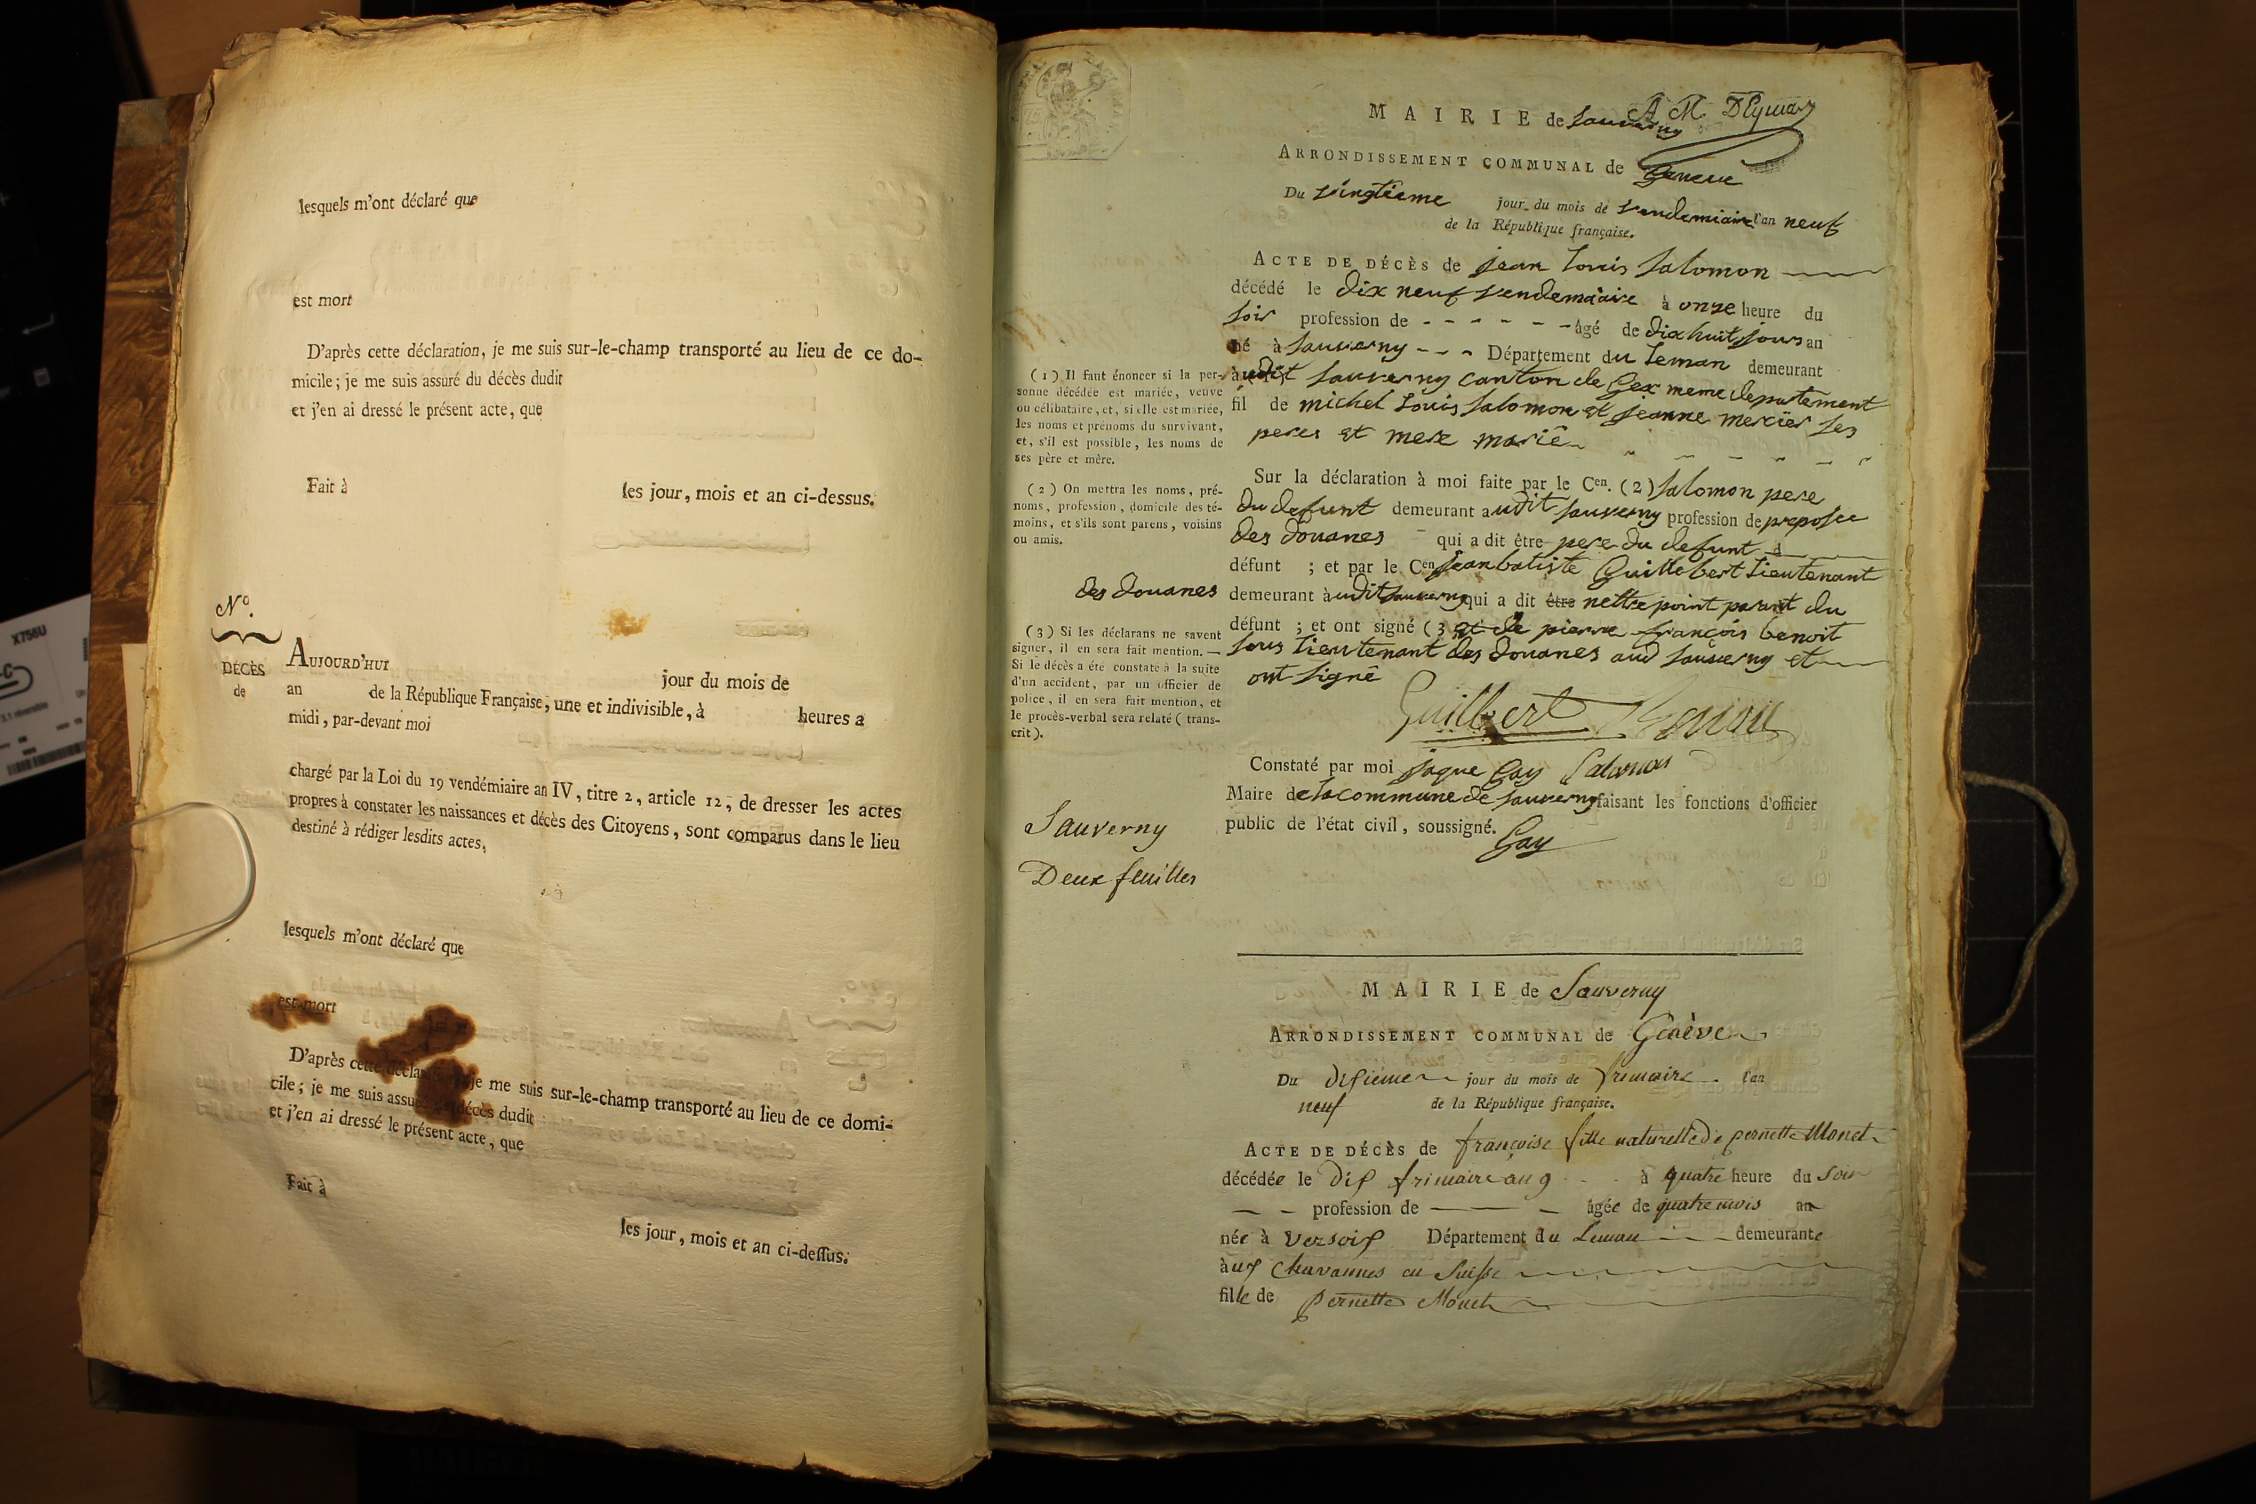 lesquels m'ont déclaré que
est mort
D'après cette déclaration, je me suis sur-le-champ transporté au lieu de ce do-
micile; je me suis assuré du décès dudit
et j'en ai dressé le présent acte, que
Fait à
les jour, mois et an ci-dessus.
N°.
DÉCÈS
de
AUJOURD'HUI
jour du mois de
an de la République Française, une et indivisible, à heures a
midi, par-devant moi
chargé par la Loi du 19 vendémiaire an IV, titre 2, article 12, de dresser les actes
propres à constater les naissances et décès des Citoyens, sont comparus dans le lieu
destiné à rédiger lesdits actes,
lesquels m'ont déclaré que
est mort
D'après cette je me suis sur-le-champ transporté au lieu de ce domi-
cile; je me suis assuré décès dudit
et j'en ai dressé le présent acte, que
Fait à
les jour, mois et an ci-dessus.
A M
MAIRIE de Sauverny
ARRONDISSEMENT COMMUNAL de Geneve
Du vingtieme jour du mois de vendemiaire l'an neuf
de la République française.
ACTE DE DÉCÈS de jean louis Salomon
décédé le dix neuf vendemiaire à onze heure du
soir profession de - - - - - - âgé de dix huit jours an
né à Sauverny - - - Département du leman demeurant
audit Sauverny canton de Gex meme departement
fil de michel louis Salomon et jeanne mercier ses
peres et mere marié
Sur la déclaration à moi faite par le Cen. (2) Salomon pere
du defunt demeurant audit Sauverny profession de preposee
des douanes qui a dit être pere du defunt d
défunt ; et par le Cen jean batiste Guillebert lieutenant
des douanes
demeurant à udit Sauverny qui a dit être nettre point parant du
défunt ; et ont signé (3 et de pierre françois benoit
sous lieutenant des douanes aud Sauverny et
ont signé
Guillbert Benoit
Constaté par moi jaque Gay Salomon
Maire de la commune de Sauverny faisant les fonctions d'officier
public de l'état civil, soussigné.
Gay
(1) Il faut énoncer si la per-
sonne décédée est mariée, veuve
ou célibataire, et, si elle est mariée,
les noms et prénoms du survivant,
et, s'il est possible, les noms de
ses père et mère.
(2) On mettra les noms, pré-
noms, profession, domicile des té-
moins, et s'ils sont parens, voisins
ou amis.
(3) Si les déclarans ne savent
signer, il en sera fait mention. —
Si le décès a été constaté à la suite
d'un accident, par un officier de
police, il en sera fait mention, et
le procès-verbal sera relaté (trans-
crit).
Sauverny
Deux feuilles
MAIRIE de Sauverny
ARRONDISSEMENT COMMUNAL de Genève
Du dixieme jour du mois de frimaire l'an
neuf de la République française.
ACTE DE DÉCÈS de françoise fille naturelle de pernette Monet
décédée le dix frimaire an 9 à quatre heure du soir
profession de âgée de quatre mois an
née à Versoix Département du Leman demeurante
àux Chavannes en Suisse
fille de pernette Monet